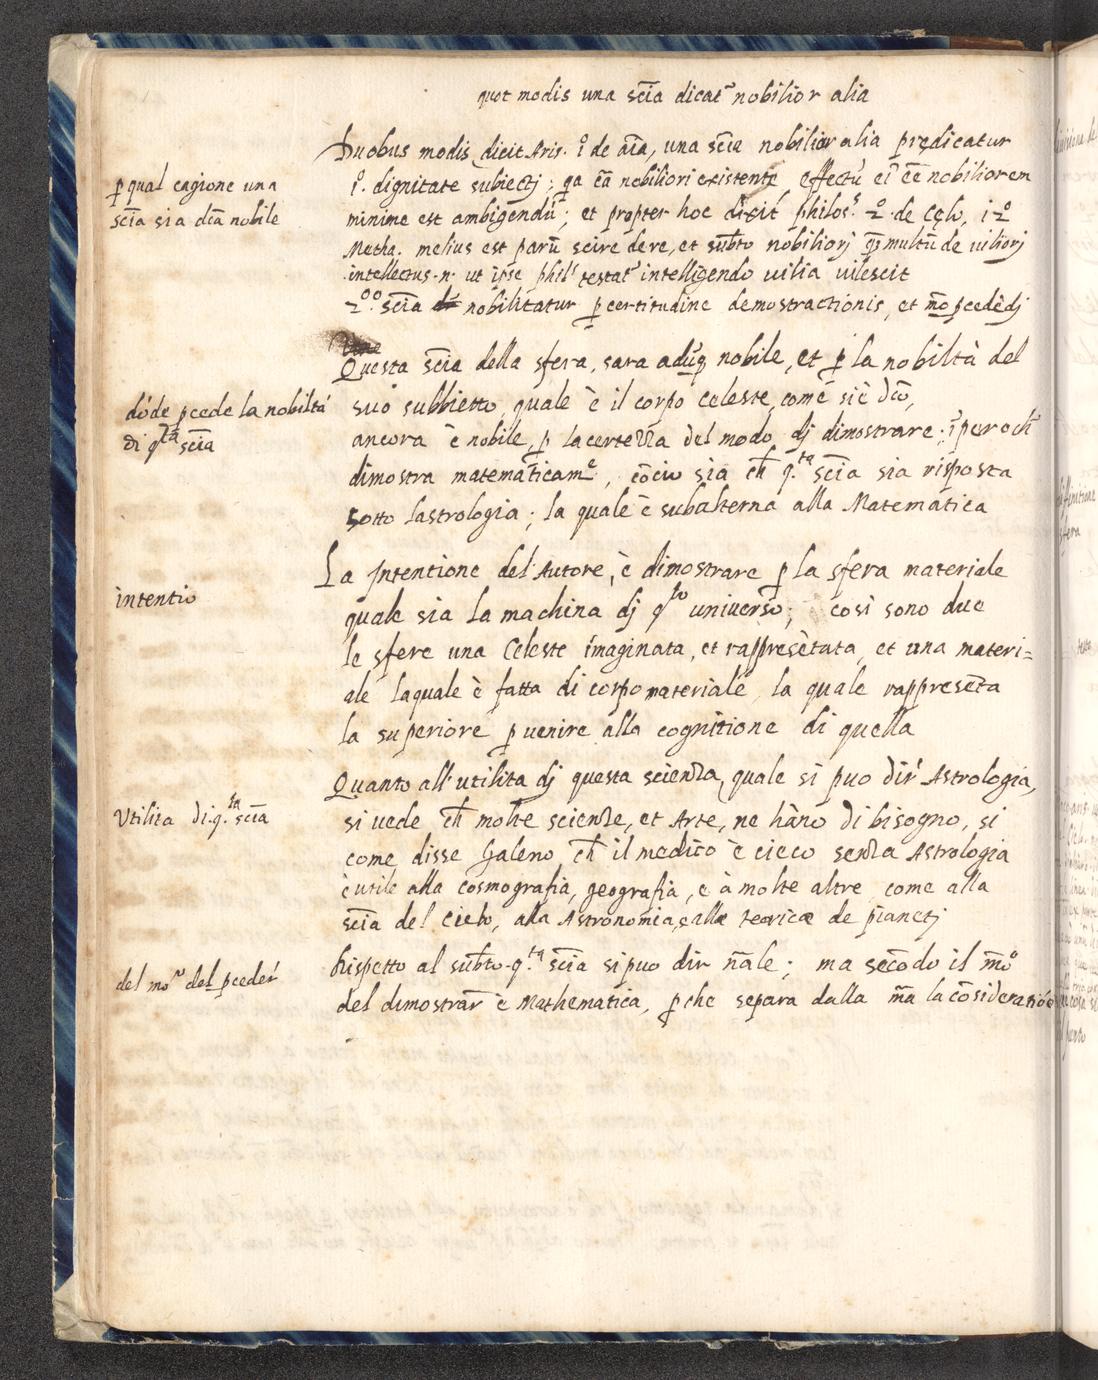 quot modis una scīa dicat̃ nobilior alia
Duobus modis dicit Aris. i.º de aīa, una scīa nobilior alia prędicatur
p̱ qual cagione una
scīa sia dt̄a nobile
i.º dignitate subiectj; qa eā nobiliori existente, effectū eī eē nobiliorem
minime est ambigendū; et propter hoc dixit philos.s 2º de Cęlo, i 2º
Metha. melius est parū scire de re, et sub̄to nobiliorj q̱ multū de uiliorj
intellectus .n. ut ipse phil.s testat̃ intelligendo uilia uilescit
2.º scīa nobilitatur p̱ certitudine demostractionis, et mō p̱cedēdj
Questa scīa della sfera, sara adūq nobile, et p̱ la nobiltà del
dōde p̱cede la nobiltá
di q.ta scīa
suo subbietto, quale è il corpo celeste, come si è dc̄o,
ancora è nobile, p̱ la certezza del modo, dj dimostrare; īperoch̄
dimostra matematicam.e, cōcio sia ch̄ q.ta scīa sia risposta
sotto lastrologia; la quale è subalterna alla Matematica
La Intentione del Autore, è dimostrare p̱ la sfera materiale
intentio
quale sia la machina dj q.to uniuerso; così sono due
le sfere una Celeste imaginata, et rappresētata, et una materi=
ale laquale è fatta di corpo materiale, la quale rappresēta
la superiore p̱ uenire alla cognitione di quella
Quanto all'utilita dj questa scienza, quale si puo dir' Astrologia,
Utilita di q.ta scīa
si uede ch̄ molte scienze, et Arte, ne hāno di bisogno, si
come disse Galeno, ch̄ il medico è cieco senza Astrologia
è utile alla cosmografia, geografia, e à molte altre come alla
scīa del cielo, alla Astronomia, e alle teorice de pianetj
Rispetto al sub̄to q.ta scīa si puo dir n̄ale; ma secōdo il mō
del mo.º del p̱ceder'
del dimostrar è Mathematica, p̱che separa dalla m̄a la cōsideratiōe